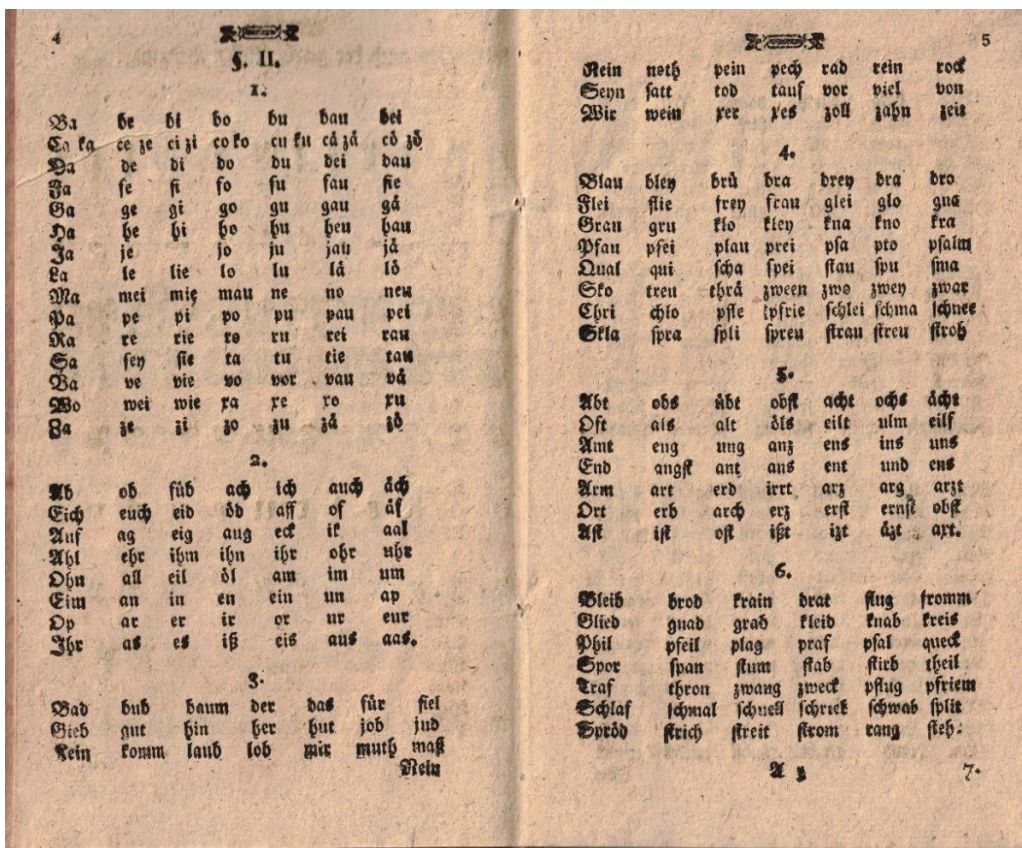 4
§. II.
1.
Ba be bi bo bu bau bei
Ca ka ce ze ci zi co ko cu ku cä zä cö zö
Da de di do du dei dau
Fa fe fi fo fu fau fie
Ga ge gi go gu gau gä
Ha he hi ho hu heu hau
Ja je jo ju jau jä
La le lie lo lu lä lö
Ma mei mie mau ne no neu
Pa pe pi po pu pau pei
Ra re rie ro ru rei rau
Sa sey sie ta tu tie tau
Va ve vie vo vor vau vä
Wo wei wie xa xe xo xu
Za ze zi zo zu zä zö
2.
Ab ob füb ach ich auch äch
Eich euch eid öd aff of äf
Auf ag eig aug eck ik aal
Ahl ehr ihm ihn ihr ohr uhr
Ohn all eil öl am im um
Eim an in en ein un ap
Op ar er ir or ur eur
Ihr as es iß eis aus aas.
3.
Bad bub baum der das für fiel
Gieb gut hin her hut job jud
Kein komm laub lob mir muth maß
Nein
5
Nein noth pein pech rad rein rock
Seyn satt tod tauf vor viel von
Wir wein xer xes zoll zahn zeit
4.
Blau bley brü bra drey dra dro
Flei flie frey frau glei glo gna
Grau gru klo kley kna kno kra
Pfau pfei plau prei psa pto psalm
Qual qui scha spei stau spu sma
Sko treu thrä zween zwo zwey zwar
Chri chlo pfle pfrie schlei schma schnee
Skla spra spli spreu strau streu stroh
5.
Abt obs übt obst acht ochs ächt
Oft als alt öls eilt ulm eilf
Amt eng ung anz ens ins uns
End angst ant aus ent und ens
Arm art erd irrt arz arg arzt
Ort erb arch erz erst ernst obst
Ast ist ost ißt izt äzt axt.
6.
Bleib brod krain drat flug fromm
Glied gnad grab kleid knab kreis
Phil pfeil plag praf psal queck
Spor span stum stab stirb theil
Traf thron zwang zweck pflug pfriem
Schlaf schmal schnell schriek schwab split
Spröd strich streit strom rang steh.
A 3 7.